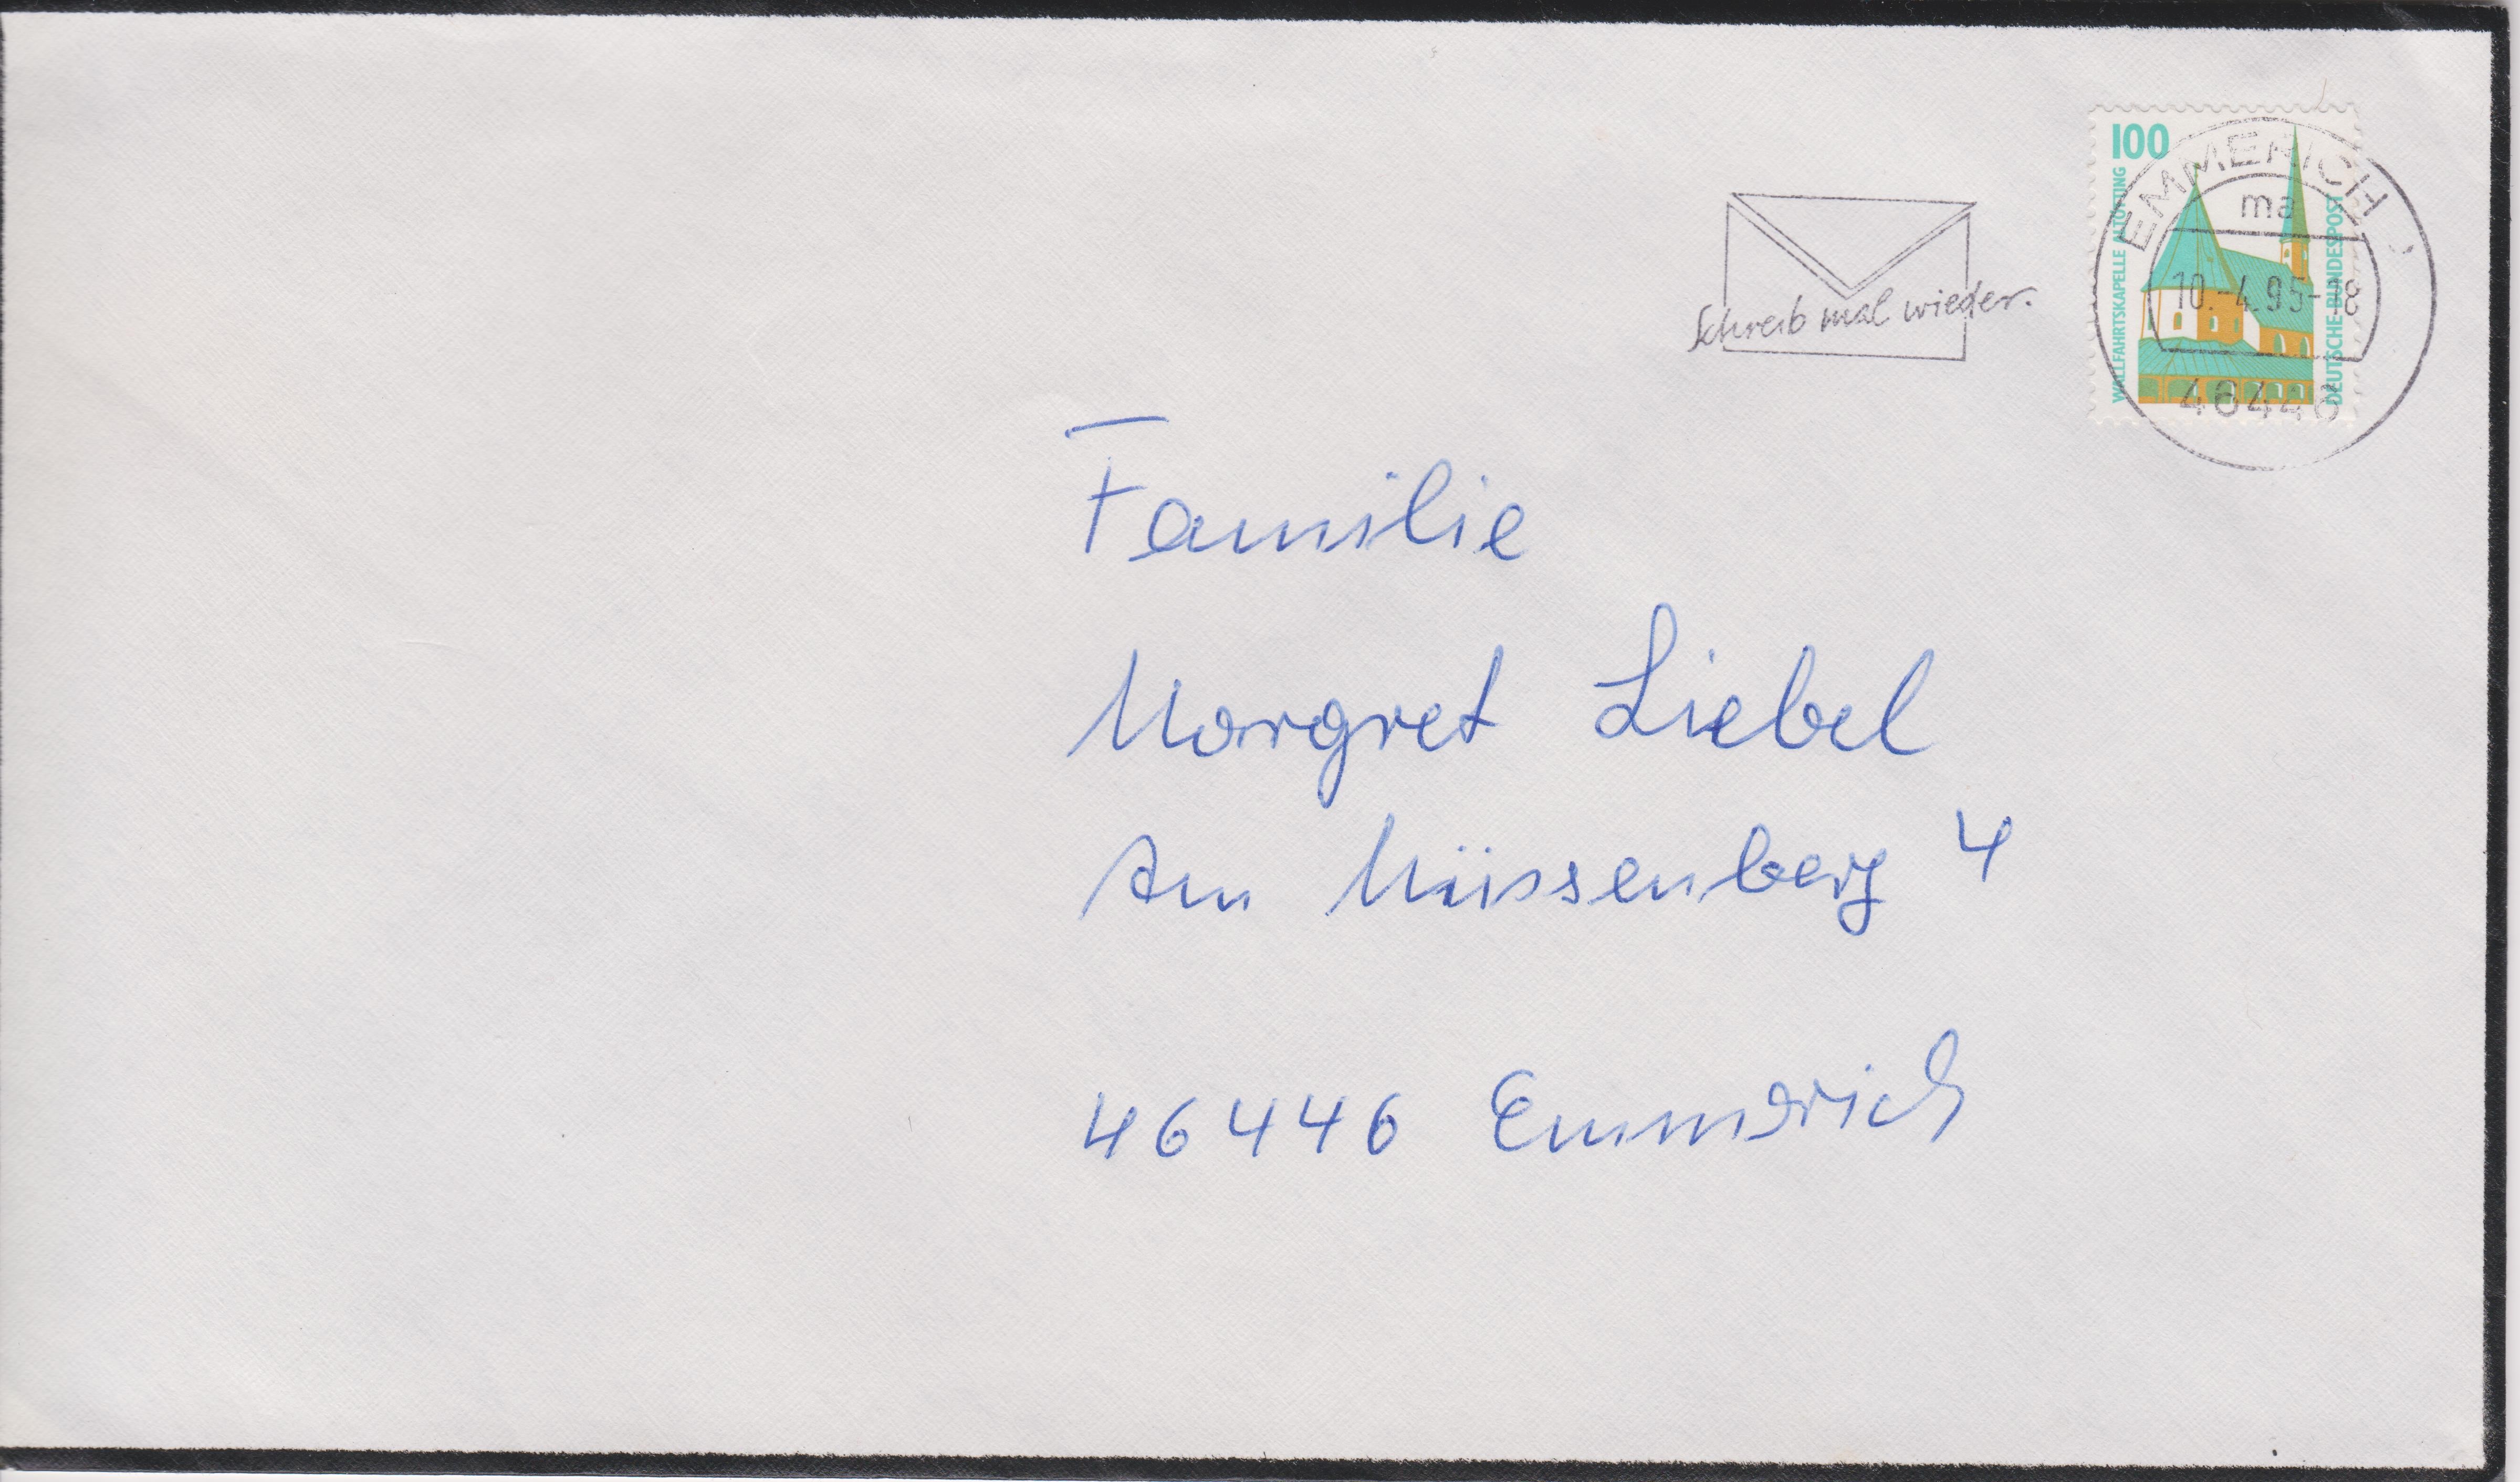 100
WALLFAHRTSKAPELLE ALTÖTTING
DEUTSCHE BUNDESPOST
EMMERICH
ma
10.-4.95-18
46446
Schreib mal wieder.
Familie
Margret Liebel
Am Müssenberg 4
46446 Emmerich